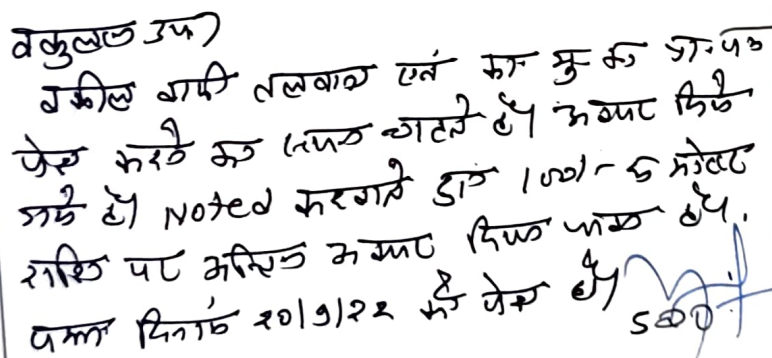 वकुलाल उप)
वकील वादी तलवाना एवं का मु का प्रा॰ पत्र
पेश करने का समय चाहते है। अवसर दिये
जाते है। Noted करवाते डाक 100/- रु कोस्ट
राशि पर अन्तिम अवसर दिया जाता है।
पत्रा दिनांक 20/9/22 को पेश हो।
SDO